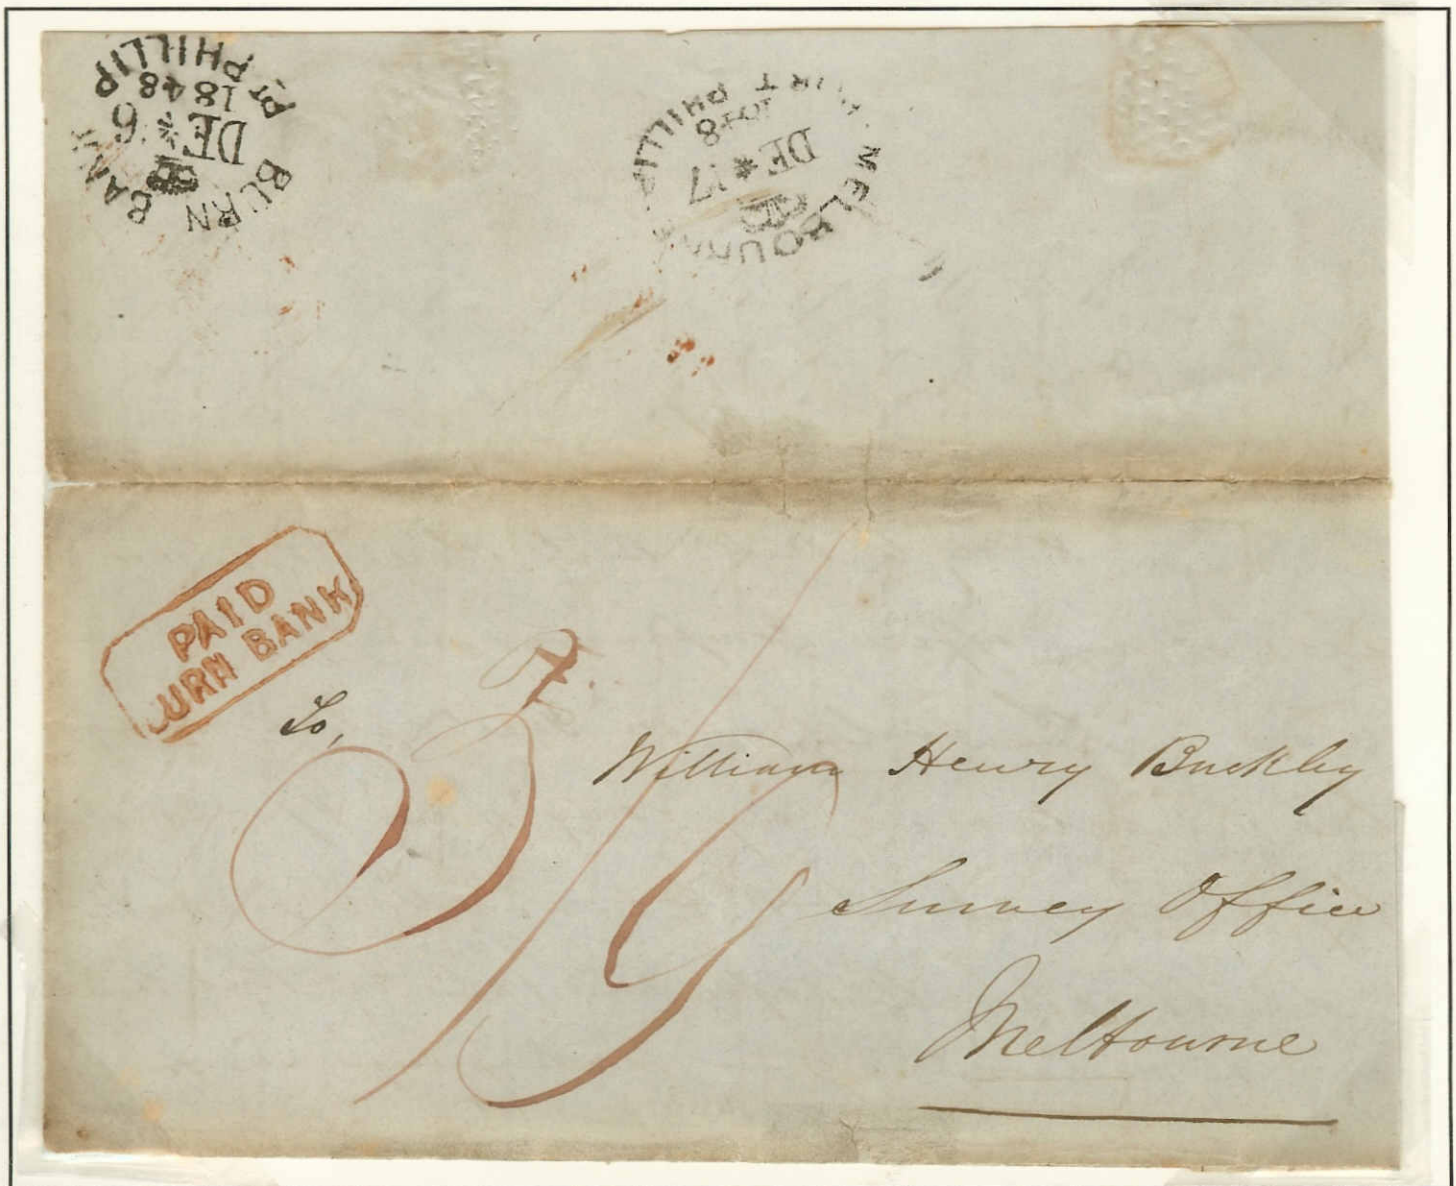 BURN BANK
DE * 6
1848
PT PHILLIP
MELBOURN
DE * 17
1848
PORT PHILLIP
PAID
BURN BANK
3/9
To,
William Henry Buckley
Survey Office
Melbourne